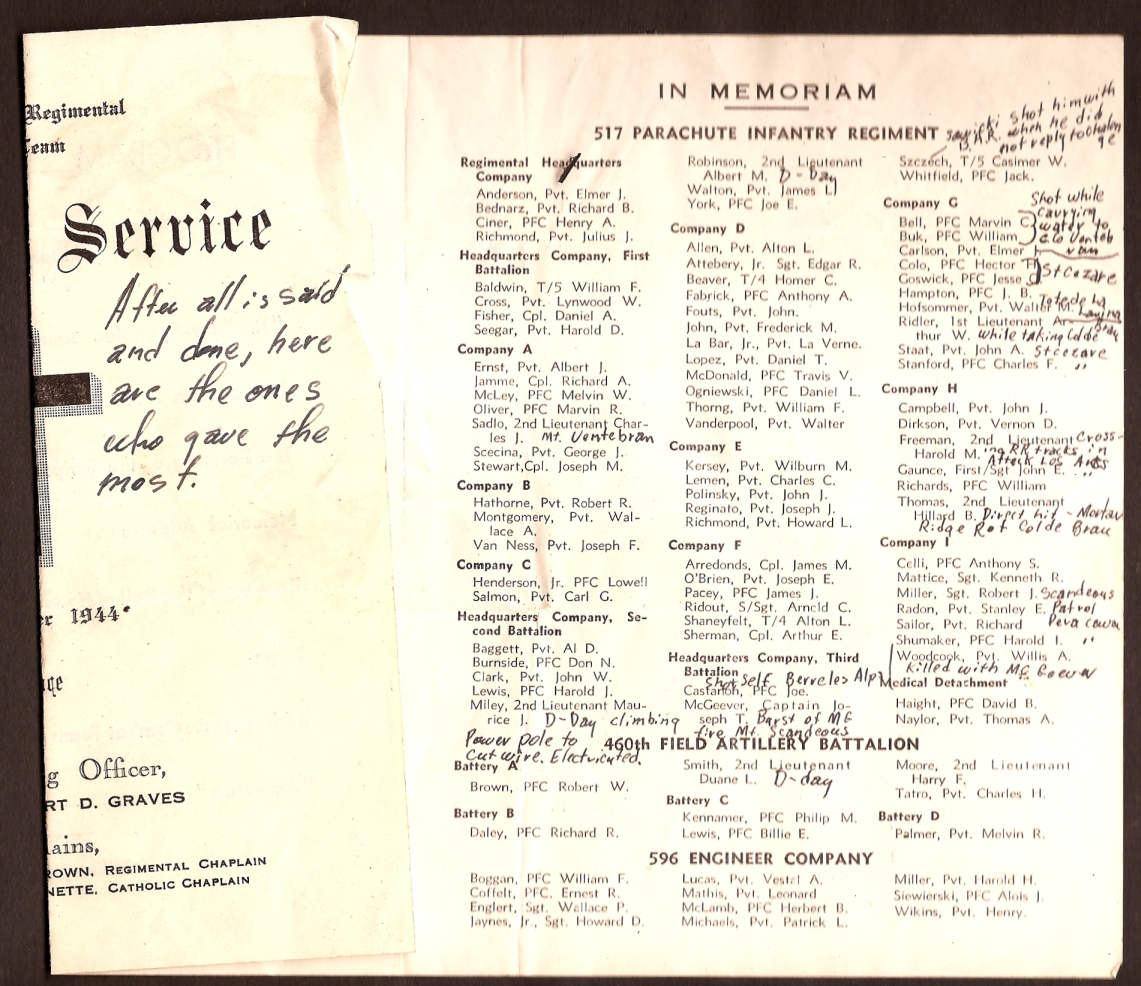 Regimental
Team
Service
After all is said
and done, here
are the ones
who gave the
most.
1944
Officer,
RT D. GRAVES
ains,
ROWN, REGIMENTAL CHAPLAIN
NETTE, CATHOLIC CHAPLAIN
IN MEMORIAM
517 PARACHUTE INFANTRY REGIMENT
shot him with
B.A.R. when he did
not reply to challen
ge
Regimental Headquarters
Company
Anderson, Pvt. Elmer J.
Bednarz, Pvt. Richard B.
Ciner, PFC Henry A.
Richmond, Pvt. Julius J.
Headquarters Company, First
Battalion
Baldwin, T/5 William F.
Cross, Pvt. Lynwood W.
Fisher, Cpl. Daniel A.
Seegar, Pvt. Harold D.
Company A
Ernst, Pvt. Albert J.
Jamme, Cpl. Richard A.
McLey, PFC Melvin W.
Oliver, PFC Marvin R.
Sadlo, 2nd Lieutenant Char-
les J. Mt. Ventebran
Scecina, Pvt. George J.
Stewart,Cpl. Joseph M.
Company B
Hathorne, Pvt. Robert R.
Montgomery, Pvt. Wal-
lace A.
Van Ness, Pvt. Joseph F.
Company C
Henderson, Jr. PFC Lowell
Salmon, Pvt. Carl G.
Headquarters Company, Se-
cond Battalion
Baggett, Pvt. Al D.
Burnside, PFC Don N.
Clark, Pvt. John W.
Lewis, PFC Harold J.
Miley, 2nd Lieutenant Mau-
rice J. D-Day climbing
Power pole to
cut wire. Electricuted.
Robinson, 2nd Lieutenant
Albert M. D-Day
Walton, Pvt. James L.
York, PFC Joe E.
Company D
Allen, Pvt. Alton L.
Attebery, Jr. Sgt. Edgar R.
Beaver, T/4 Homer C.
Fabrick, PFC Anthony A.
Fouts, Pvt. John.
John, Pvt. Frederick M.
La Bar, Jr., Pvt. La Verne.
Lopez, Pvt. Daniel T.
McDonald, PFC Travis V.
Ogniewski, PFC Daniel L.
Thorng, Pvt. William F.
Vanderpool, Pvt. Walter
Company E
Kersey, Pvt. Wilburn M.
Lemen, Pvt. Charles C.
Polinsky, Pvt. John J.
Reginato, Pvt. Joseph J.
Richmond, Pvt. Howard L.
Company F
Arredonds, Cpl. James M.
O'Brien, Pvt. Joseph E.
Pacey, PFC James J.
Ridout, S/Sgt. Arnold C.
Shaneyfelt, T/4 Alton L.
Sherman, Cpl. Arthur E.
Headquarters Company, Third
Battalion
Shot self Berreles Alp
Castanon, PFC Joe.
McGeever, Captain Jo-
seph T. Burst of MG
fire Mt. Scandeous
Szczech, T/5 Casimer W.
Whitfield, PFC Jack.
Company G
Shot while
carrying
water to
Bell, PFC Marvin C.
Buk, PFC William
Carlson, Pvt. Elmer
Colo, PFC Hector
Goswick, PFC Jesse
St cezare
Hampton, PFC J. B.
Hofsommer, Pvt. Walter M.
Ridler, 1st Lieutenant Ar-
thur W. while taking Colde Brau
Staat, Pvt. John A. St cezare
Stanford, PFC Charles F. "
Company H
Campbell, Pvt. John J.
Dirkson, Pvt. Vernon D.
Freeman, 2nd Lieutenant Cross-
Harold M. ing RR tracks in
Attack Los Arcs
Gaunce, First/Sgt John E. "
Richards, PFC William
Thomas, 2nd Lieutenant
Hillard B. Direct hit - Mortar
Ridge Rot Colde Brau
Company I
Celli, PFC Anthony S.
Mattice, Sgt. Kenneth R.
Miller, Sgt. Robert J. Scandeous
Radon, Pvt. Stanley E. Patrol
Sailor, Pvt. Richard Pera cava
Shumaker, PFC Harold I. "
Woodcock, Pvt. Willis A.
Killed with McGeever
Medical Detachment
Haight, PFC David B.
Naylor, Pvt. Thomas A.
460th FIELD ARTILLERY BATTALION
Battery A
Brown, PFC Robert W.
Battery B
Daley, PFC Richard R.
Smith, 2nd Lieutenant
Duane L. D-day
Battery C
Kennamer, PFC Philip M.
Lewis, PFC Billie E.
Moore, 2nd Lieutenant
Harry F.
Tatro, Pvt. Charles H.
Battery D
Palmer, Pvt. Melvin R.
596 ENGINEER COMPANY
Boggan, PFC William F.
Coffelt, PFC. Ernest R.
Englert, Sgt. Wallace P.
Jaynes, Jr., Sgt. Howard D.
Lucas, Pvt. Vestal A.
Mathis, Pvt. Leonard
McLamb, PFC Herbert B.
Michaels, Pvt. Patrick L.
Miller, Pvt. Harold H.
Siewierski, PFC Alois J.
Wikins, Pvt. Henry.